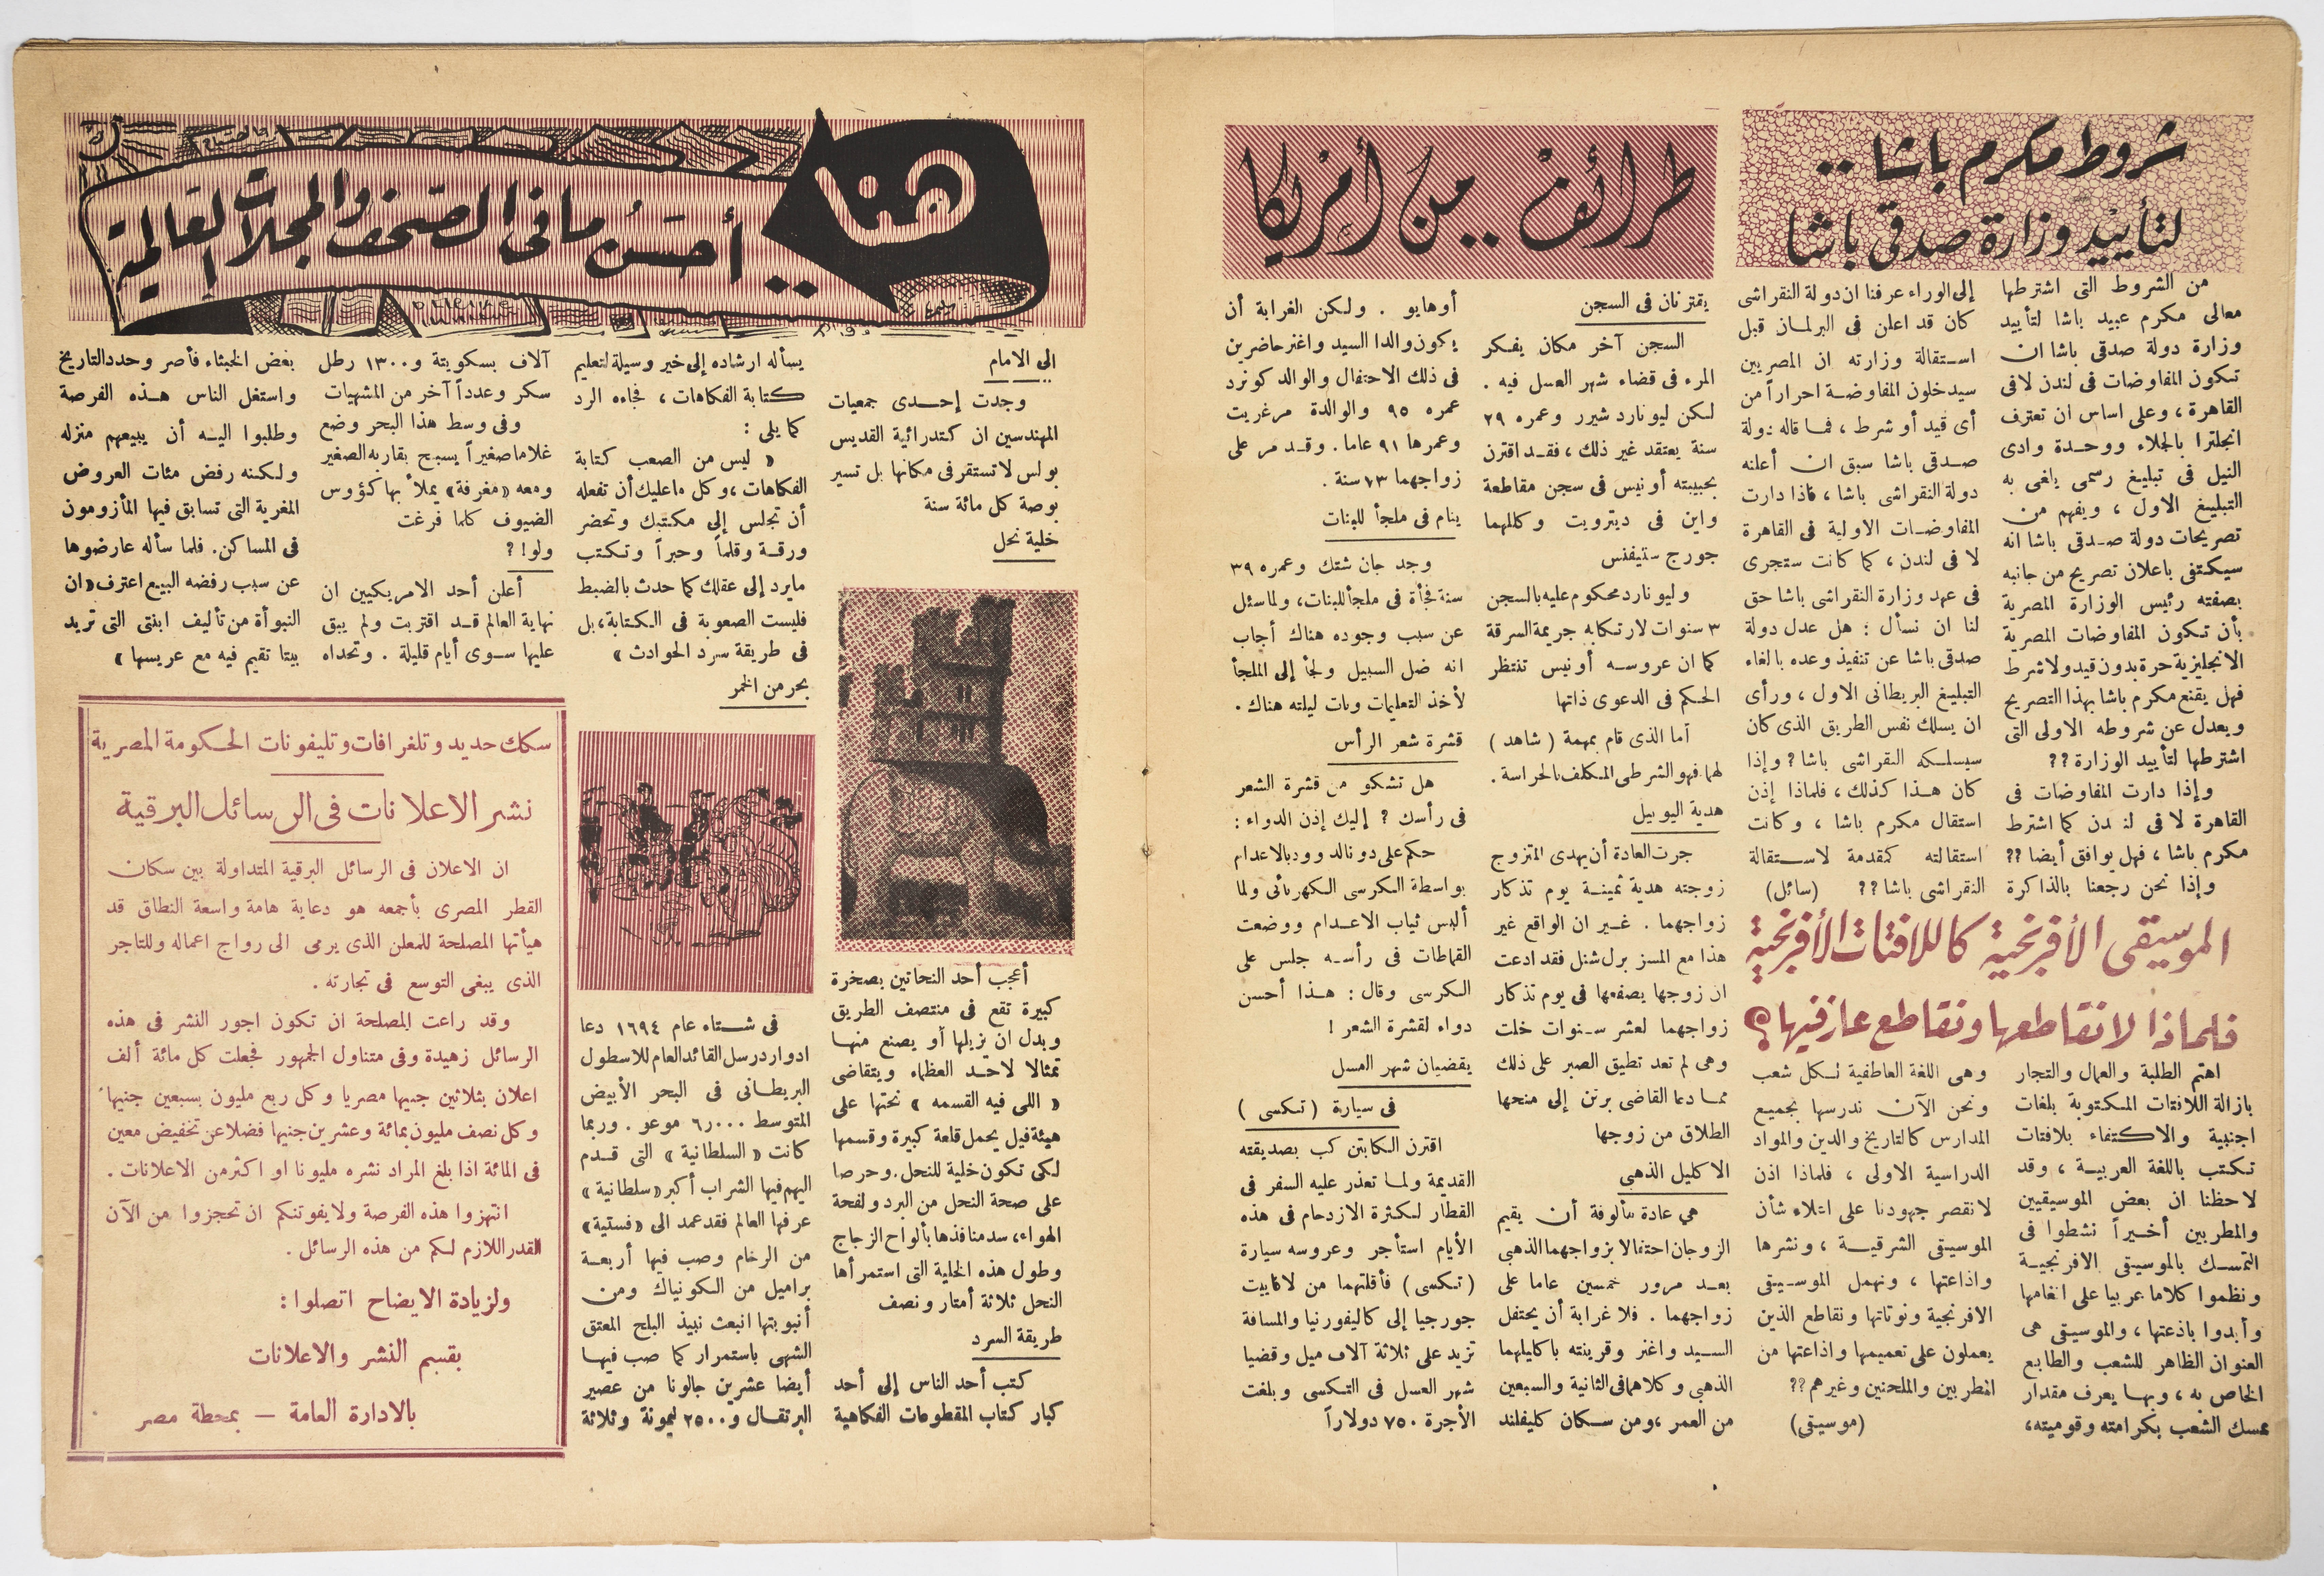 شروط مكرم باشا ..
لتأييد وزارة صدقى باشا
من الشروط التى اشترطها
معالى مكرم عبيد باشا لتأييد
وزارة دولة صدقى باشا ان
تكون المفاوضات فى لندن لا فى
القاهرة ، وعلى اساس ان تعترف
انجلترا بالجلاء ووحدة وادى
النيل فى تبليغ رسمى يلغى به
التبليغ الاول ، ويفهم من
تصريحات دولة صدقى باشا انه
سيكتفى باعلان تصريح من جانبه
بصفته رئيس الوزارة المصرية
بأن تكون المفاوضات المصرية
الانجليزية حرة بدون قيد ولا شرط
فهل يقنع مكرم باشا بهذا التصريح
ويعدل عن شروطه الاولى التى
اشترطها لتأييد الوزارة ؟؟
وإذا دارت المفاوضات فى
القاهرة لا فى لندن كما اشترط
مكرم باشا ، فهل يوافق أيضا ؟؟
وإذا نحن رجعنا بالذاكرة
إلى الوراء عرفنا ان دولة النقراشى
كان قد اعلن فى البرلمان قبل
استقالة وزارته ان المصريين
سيدخلون المفاوضة احراراً من
أى قيد أو شرط ، فما قاله دولة
صدقى باشا سبق ان أعلنه
دولة النقراشى باشا ، فاذا دارت
المفاوضات الاولية فى القاهرة
لا فى لندن ، كما كانت ستجرى
فى عهد وزارة النقراشى باشا حق
لنا ان نسأل : هل عدل دولة
صدقى باشا عن تنفيذ وعده بالغاء
التبليغ البريطانى الاول ، ورأى
ان يسلك نفس الطريق الذى كان
سيسلكه النقراشى باشا ؟ وإذا
كان هذا كذلك ، فلماذا إذن
استقال مكرم باشا ، وكانت
استقالته كمقدمة لاستقالة
النقراشى باشا ؟؟ (سائل)
الموسيقى الأفرنجية كاللافتات الأفرنجية
فلماذا لا نقاطعها ونقاطع عازفيها ؟
اهتم الطلبة والعمال والتجار
بازالة اللافتات المكتوبة بلغات
اجنبية والاكتفاء بلافتات
تكتب باللغة العربية ، وقد
لاحظنا ان بعض الموسيقيين
والمطربين أخيراً نشطوا فى
التمسك بالموسيقى الافرنجية
ونظموا كلاما عربيا على انغامها
وأبدوا باذعتها ، والموسيقى هى
العنوان الظاهر للشعب والطابع
الخاص به ، وبها يعرف مقدار
تمسك الشعب بكرامته وقوميته ،
وهى اللغة العاطفية لكل شعب
ونحن الآن ندرسها بجميع
المدارس كالتاريخ والدين والمواد
الدراسية الاولى ، فلماذا اذن
لا نقصر جهودنا على اعلاء شأن
الموسيقى الشرقية ، ونشرها
واذاعتها ، ونهمل الموسيقى
الافرنجية ونوتاتها ونقاطع الذين
يعملون على تعميمها واذاعتها من
المطربين والملحنين وغيرهم ؟؟
(موسيقى)
طرائف .. من أمريكا
يقترنان فى السجن
السجن آخر مكان يفكر
المرء فى قضاء شهر العسل فيه .
لكن ليونارد شيرر وعمره ٢٩
سنة يعتقد غير ذلك ، فقد اقترن
بحبيبته أونيس فى سجن مقاطعة
واين فى ديترويت وكللهما
جورج ستيفنس
وليونارد محكوم عليه بالسجن
٣ سنوات لارتكابه جريمة السرقة
كما ان عروسه أونيس تنتظر
الحكم فى الدعوى ذاتها
أما الذى قام بمهمة ( شاهد )
لهما فهو الشرطى المكلف بالحراسة .
هدية اليوبيل
جرت العادة أن يهدى المتزوج
زوجته هدية ثمينة يوم تذكار
زواجهما . غير ان الواقع غير
هذا مع المسز برل شنل فقد ادعت
ان زوجها يصفعها فى يوم تذكار
زواجهما لعشر سنوات خلت
وهى لم تعد تطيق الصبر على ذلك
مما دعا القاضى برتن إلى منحها
الطلاق من زوجها
الاكليل الذهبى
هى عادة مألوفة أن يقيم
الزوجان احتفالا بزواجهما الذهبى
بعد مرور خمسين عاما على
زواجهما . فلا غرابة أن يحتفل
السيد واغنر وقرينته باكليلهما
الذهبى وكلاهما فى الثانية والسبعين
من العمر ، ومن سكان كليفلند
أوهايو . ولكن الغرابة أن
يكون والدا السيد واغنر حاضرين
فى ذلك الاحتفال والوالد كونرد
عمره ٩٥ والوالدة مرغريت
وعمرها ٩١ عاما . وقد مر على
زواجهما ٧٣ سنة .
ينام فى ملجأ للبنات
وجد جان شتك وعمره ٣٩
سنة فجأة فى ملجأ للبنات ، ولما سئل
عن سبب وجوده هناك أجاب
انه ضل السبيل ولجأ إلى الملجأ
لأخذ التعليمات وبات ليلته هناك .
قشرة شعر الرأس
هل تشكو من قشرة الشعر
فى رأسك ؟ إليك إذن الدواء :
حكم على دونالد وود بالاعدام
بواسطة الكرسى الكهربائى ولما
ألبس ثياب الاعدام ووضعت
القماطات فى رأسه جلس على
الكرسى وقال : هذا أحسن
دواء لقشرة الشعر !
يقضيان شهر العسل
فى سيارة ( تكسى )
اقترن الكابتن كب بصديقته
القديمة ولما تعذر عليه السفر فى
القطار لكثرة الازدحام فى هذه
الأيام استأجر وعروسه سيارة
( تكسى ) فأقلتهما من لافاييت
جورجيا إلى كاليفورنيا والمسافة
تزيد على ثلاثة آلاف ميل وقضيا
شهر العسل فى التكسى وبلغت
الأجرة ٧٥٠ دولاراً
هنا
.. أحسن ما فى الصحف والمجلات العالمية
إلى الامام
وجدت إحدى جمعيات
المهندسين ان كتدرائية القديس
بولس لا تستقر فى مكانها بل تسير
بوصة كل مائة سنة
خلية نحل
أعجب أحد النحاتين بصخرة
كبيرة تقع فى منتصف الطريق
وبدل ان يزيلها أو يصنع منها
تمثالا لاحد العظماء ويتقاضى
« اللى فيه القسمه » نحتها على
هيئة فيل يحمل قلعة كبيرة وقسمها
لكى تكون خلية للنحل . وحرصا
على صحة النحل من البرد ولفحة
الهواء ، سد منافذها بألواح الزجاج
وطول هذه الخلية التى استمرأها
النحل ثلاثة أمتار ونصف
طريقة السرد
كتب أحد الناس إلى أحد
كبار كتاب المقطوعات الفكاهية
يسأله ارشاده إلى خير وسيلة لتعليم
كتابة الفكاهات ، فجاءه الرد
كما يلى :
« ليس من الصعب كتابة
الفكاهات ، وكل ما عليك أن تفعله
أن تجلس إلى مكتبك وتحضر
ورقة وقلماً وحبراً وتكتب
ما يرد إلى عقلك كما حدث بالضبط
فليست الصعوبة فى الكتابة ، بل
فى طريقة سرد الحوادث »
بحر من الخمر
فى شتاء عام ١٦٩٤ دعا
ادوارد رسل القائد العام للاسطول
البريطانى فى البحر الأبيض
المتوسط ٦٫٠٠٠ مدعو . وربما
كانت « السلطانية » التى قدم
اليهم فيها الشراب أكبر « سلطانية »
عرفها العالم فقد عمد الى « فستية »
من الرخام وصب فيها أربعة
براميل من الكونياك ومن
أنبوبتها انبعث نبيذ البلح المعتق
الشهى باستمرار كما صب فيها
أيضا عشرين جالونا من عصير
البرتقال و ٢٥٠٠ ليمونة وثلاثة
آلاف بسكويتة و ١٣٠٠ رطل
سكر وعدداً آخر من المشهيات
وفى وسط هذا البحر وضع
غلاما صغيراً يسبح بقاربه الصغير
ومعه « مغرفة » يملأ بها كؤوس
الضيوف كلما فرغت
ولو ! ؟
أعلن أحد الامريكيين ان
نهاية العالم قد اقتربت ولم يبق
عليها سوى أيام قليلة . وتحداه
بعض الخبثاء فأصر وحدد التاريخ
واستغل الناس هذه الفرصة
وطلبوا اليه أن يبيعهم منزله
ولكنه رفض مئات العروض
المغرية التى تسابق فيها المأزومون
فى المساكن . فلما سأله عارضوها
عن سبب رفضه البيع اعترف « ان
النبوأة من تأليف ابنتى التى تريد
بيتا تقيم فيه مع عريسها »
سكك حديد وتلغرافات وتليفونات الحكومة المصرية
نشر الاعلانات فى الرسائل البرقية
ان الاعلان فى الرسائل البرقية المتداولة بين سكان
القطر المصرى بأجمعه هو دعاية هامة واسعة النطاق قد
هيأتها المصلحة للمعلن الذى يرمى الى رواج اعماله وللتاجر
الذى يبغى التوسع فى تجارته .
وقد راعت المصلحة ان تكون اجور النشر فى هذه
الرسائل زهيدة وفى متناول الجمهور فجعلت كل مائة ألف
اعلان بثلاثين جنيها مصريا وكل ربع مليون بسبعين جنيها
وكل نصف مليون بمائة وعشرين جنيها فضلا عن تخفيض معين
فى المائة اذا بلغ المراد نشره مليونا او اكثر من الاعلانات .
انتهزوا هذه الفرصة ولا يفوتنكم ان تحجزوا من الآن
القدر اللازم لكم من هذه الرسائل .
ولزيادة الايضاح اتصلوا :
بقسم النشر والاعلانات
بالادارة العامة — بمحطة مصر